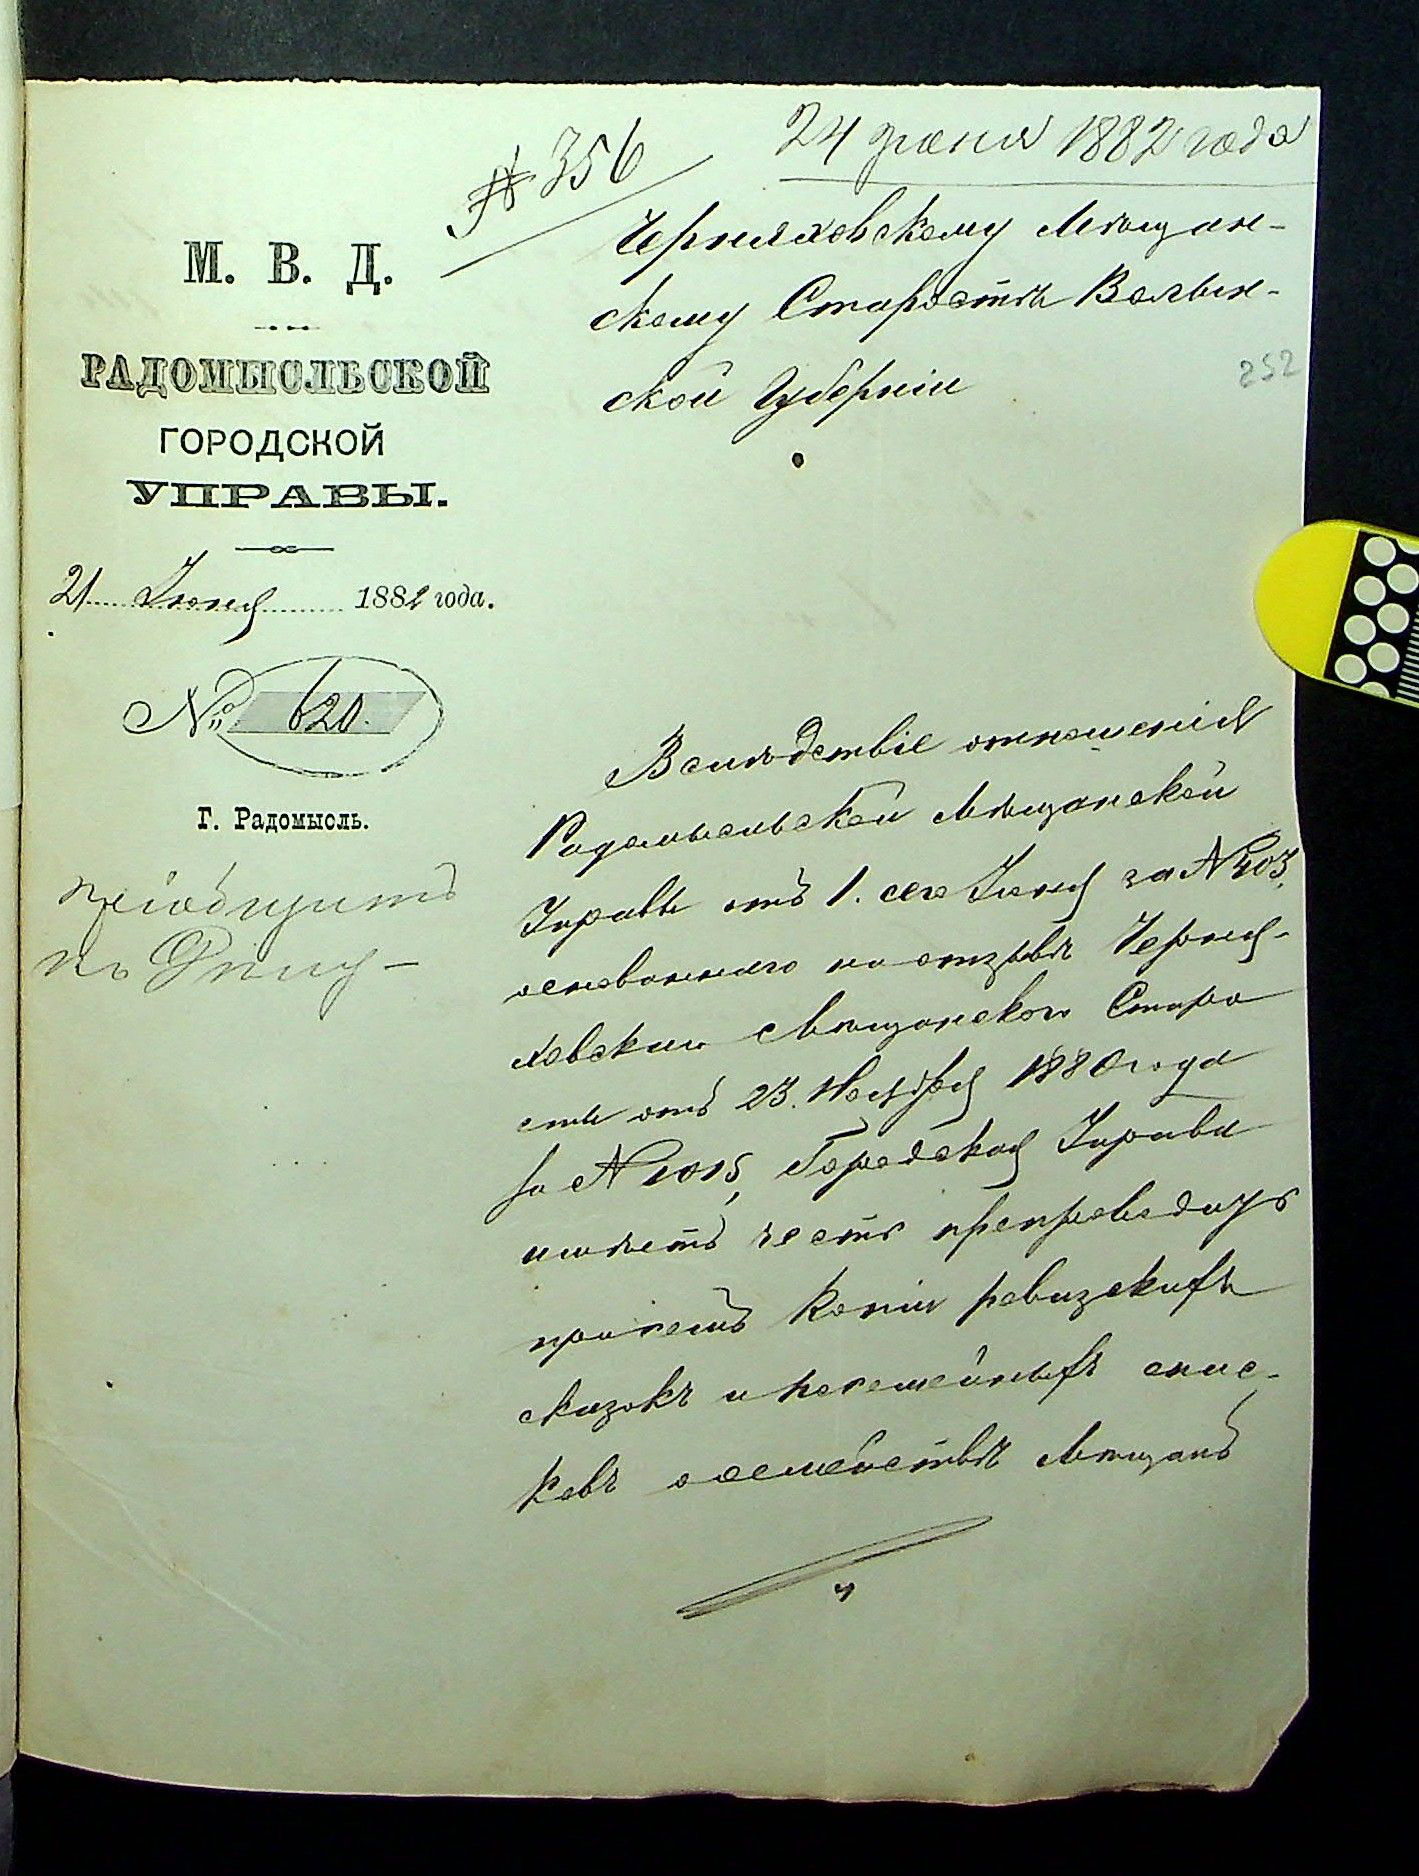 № 356
24 июня 1882 года
М. В. Д.
РАДОМЫСЛЬСКОЙ
ГОРОДСКОЙ
УПРАВЫ.
21 Июня 1882 года.
№ 620.
Г. Радомысль.
Черняховскому Мѣщан-
скому Старостѣ Волын-
ской Губерніи
252
Вслѣдствіе отношенія
Радомысльской Мѣщанской
Управы отъ 1. сего Іюня за № 403,
основаннаго на отзывѣ Черня-
ховскаго Мѣщанскаго Старо
сты отъ 23. Ноября 1880 года
за № 1015, Городская Управа
имѣетъ честь препроводить
при семъ копіи ревизскихъ
сказокъ и посемейныхъ спис-
ковъ о семействѣ Мѣщанъ
къ Дѣлу